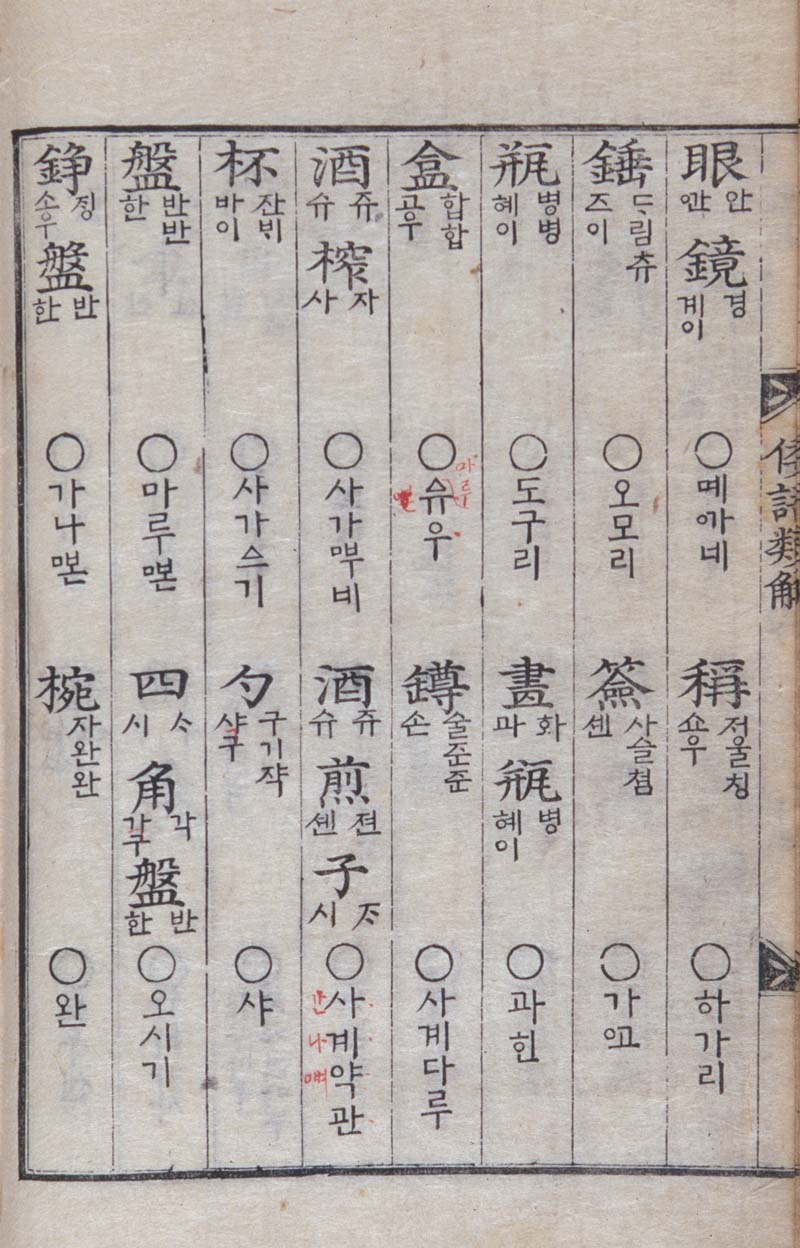 倭語類解
眼 안 ᅁᅡᆫ 鏡 경 계이 ○ 메ᅁᅡ네 稱 저울칭 쇼우 ○ 하가리
錘 드림츄 즈이 ○ 오모리 簽 사슬쳠 셴 ○ 가ᅁᅩ
甁 병병 혜이 ○ 도구리 畫 화 과 甁 병 혜이 ○ 과힌
盒 합합 공우 ○ 슈우 마루 罇 술준준 손 ○ 사계다루
酒 쥬 슈 榨 자 사 ○ 사가ᄜᅮ비 酒 쥬 슈 煎 젼 셴 子 ᄌᆞ 시 ○ 사계약관 간나ᄜᅧ
杯 잔ᄇᆡ 바이 ○ 사가스기 勺 구기쟉 샤구 ○ 샤
盤 반반 한 ○ 마루ᄜᅩᆫ 四 ᄉᆞ 시 角 각 가구 盤 반 한 ○ 오시기
錚 징 소우 盤 반 한 ○ 가나ᄜᅩᆫ 椀 자완완 ○ 완